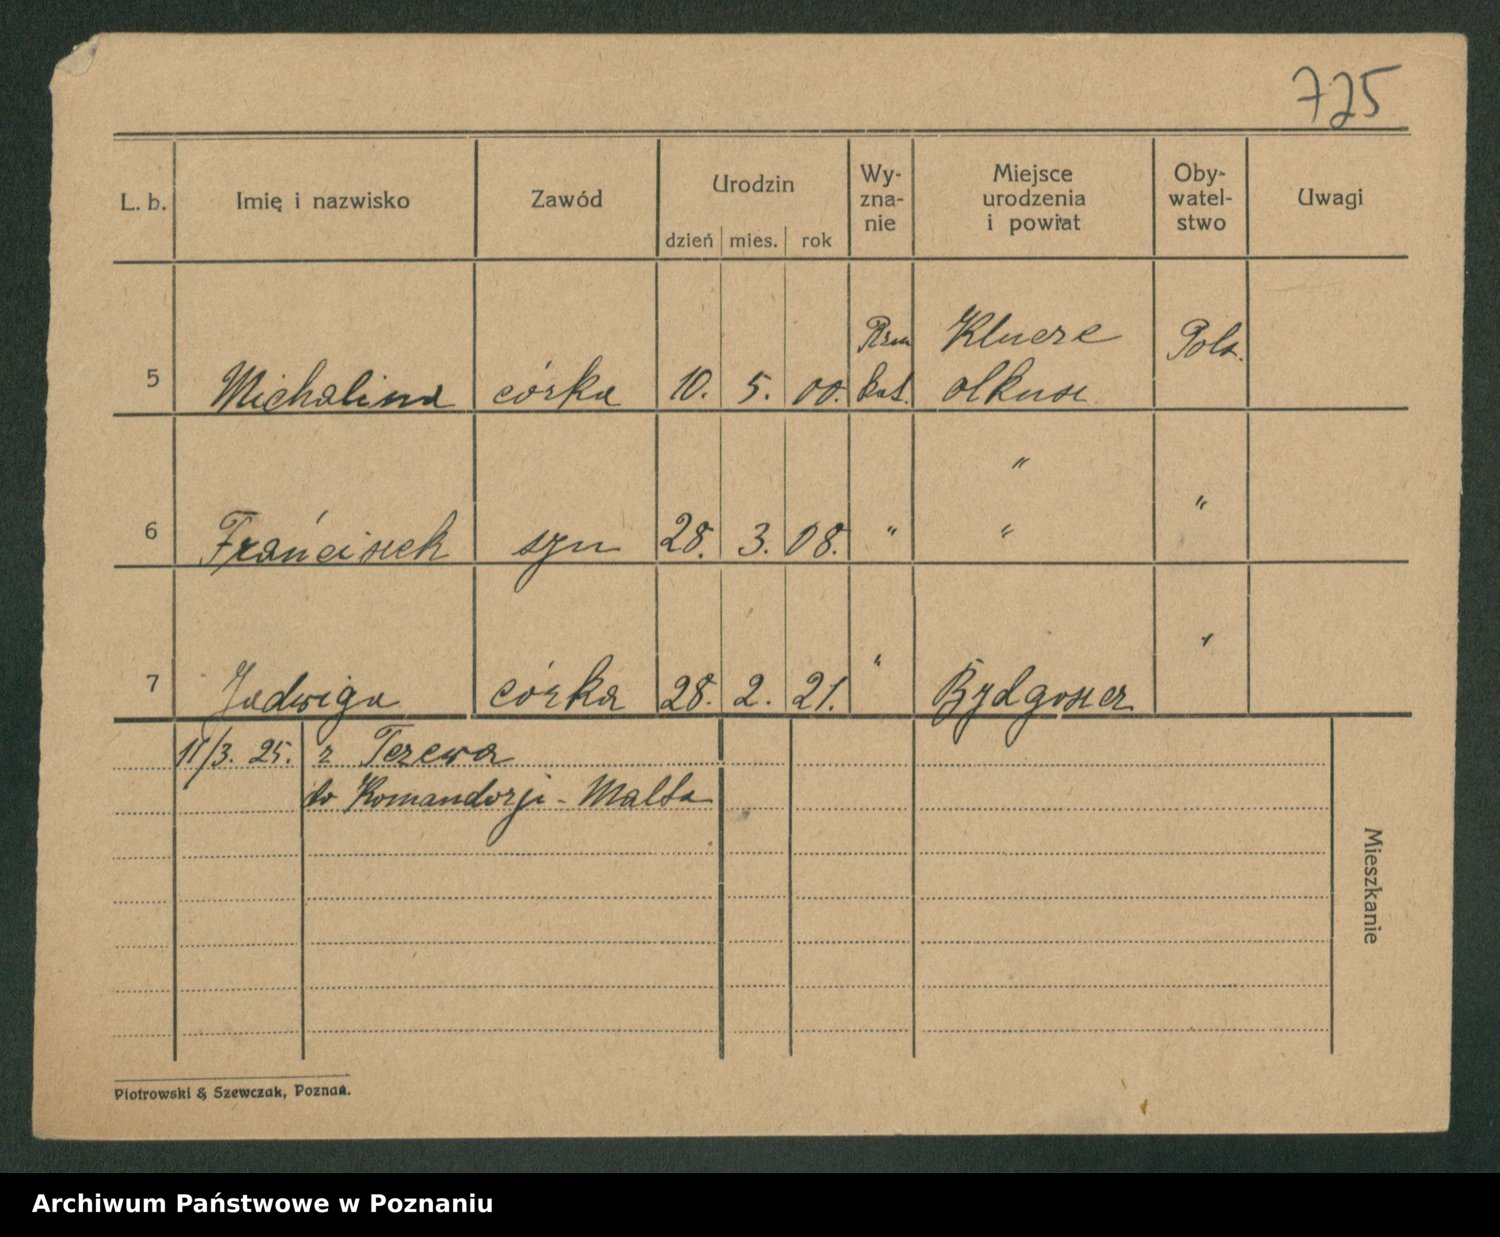 725
L. b. Imię i nazwisko Zawód Urodzin Wy-zna-nie Miejsce urodzenia i powiat Oby-watel-stwo Uwagi
dzień mies. rok
5 Michalina córka 10. 5. 00. Rzm kat. Klucze olkusz Pols.
6 Franciszek syn 28. 3. 08. " " " "
7 Jadwiga córka 28. 2. 21. " Bydgoszcz "
11/3. 25. z Tczewa
do Komandorji - Malta
Mieszkanie
Piotrowski & Szewczak, Poznań.
Archiwum Państwowe w Poznaniu